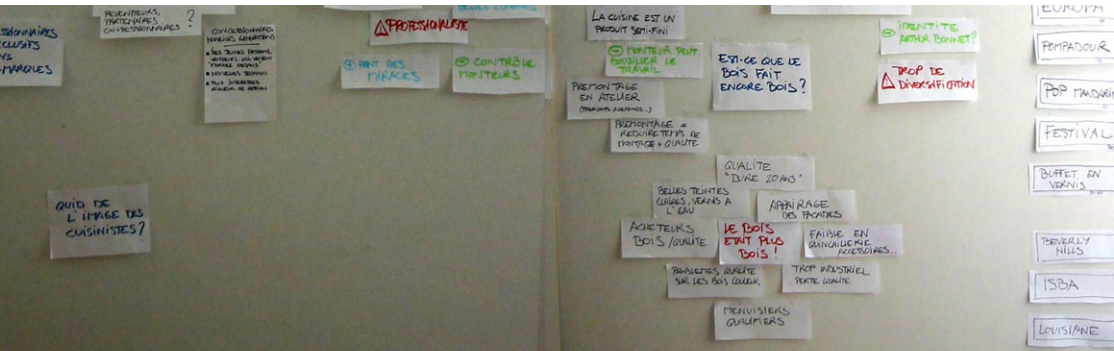 REVENDEURS,
PARTENAIRES,
CONCESSIONNAIRES ?
MARQUES
CONCESSIONNAIRES
NOUVELLES GENERATIONS
PROFESSIONALISTE
⊕ FONT DES
MIRACLES
⊖ CONTRÔLE
MONTEURS
QUID DE
L'IMAGE DES
CUISINISTES?
LA CUISINE EST UN
PRODUIT SEMI-FINI
⊖ MONTEUR PEUT
BOUSILLER LE
TRAVAIL
PREMONTAGE
EN ATELIER
PREMONTAGE =
REDUIRE TEMPS DE
MONTAGE + QUALITE
EST-CE QUE LE
BOIS FAIT
ENCORE BOIS?
⊖ IDENTITE
ARTHUR BONNET?
TROP DE
DIVERSIFICATION
QUALITE
"DURE 20 ANS"
BELLES TEINTES
CLAIRES, VERNIS A
L'EAU
APPAIRAGE
DES FACADES
ACHETEURS
BOIS/QUALITE
LE BOIS
ETAIT PLUS
BOIS!
FAIBLE EN
QUINCAILLERIE
ACCESSOIRES...
PROBLEMES QUALITE
SUR LES BOIS COULEUR
TROP INDUSTRIEL
PERTE QUALITE
MENUISIERS
QUALIFIERS
EUROPA
POMPADOUR
POP MANDARIN
FESTIVAL
BUFFET EN
VERNIS
BEVERLY
HILLS
ISBA
LOUISIANE